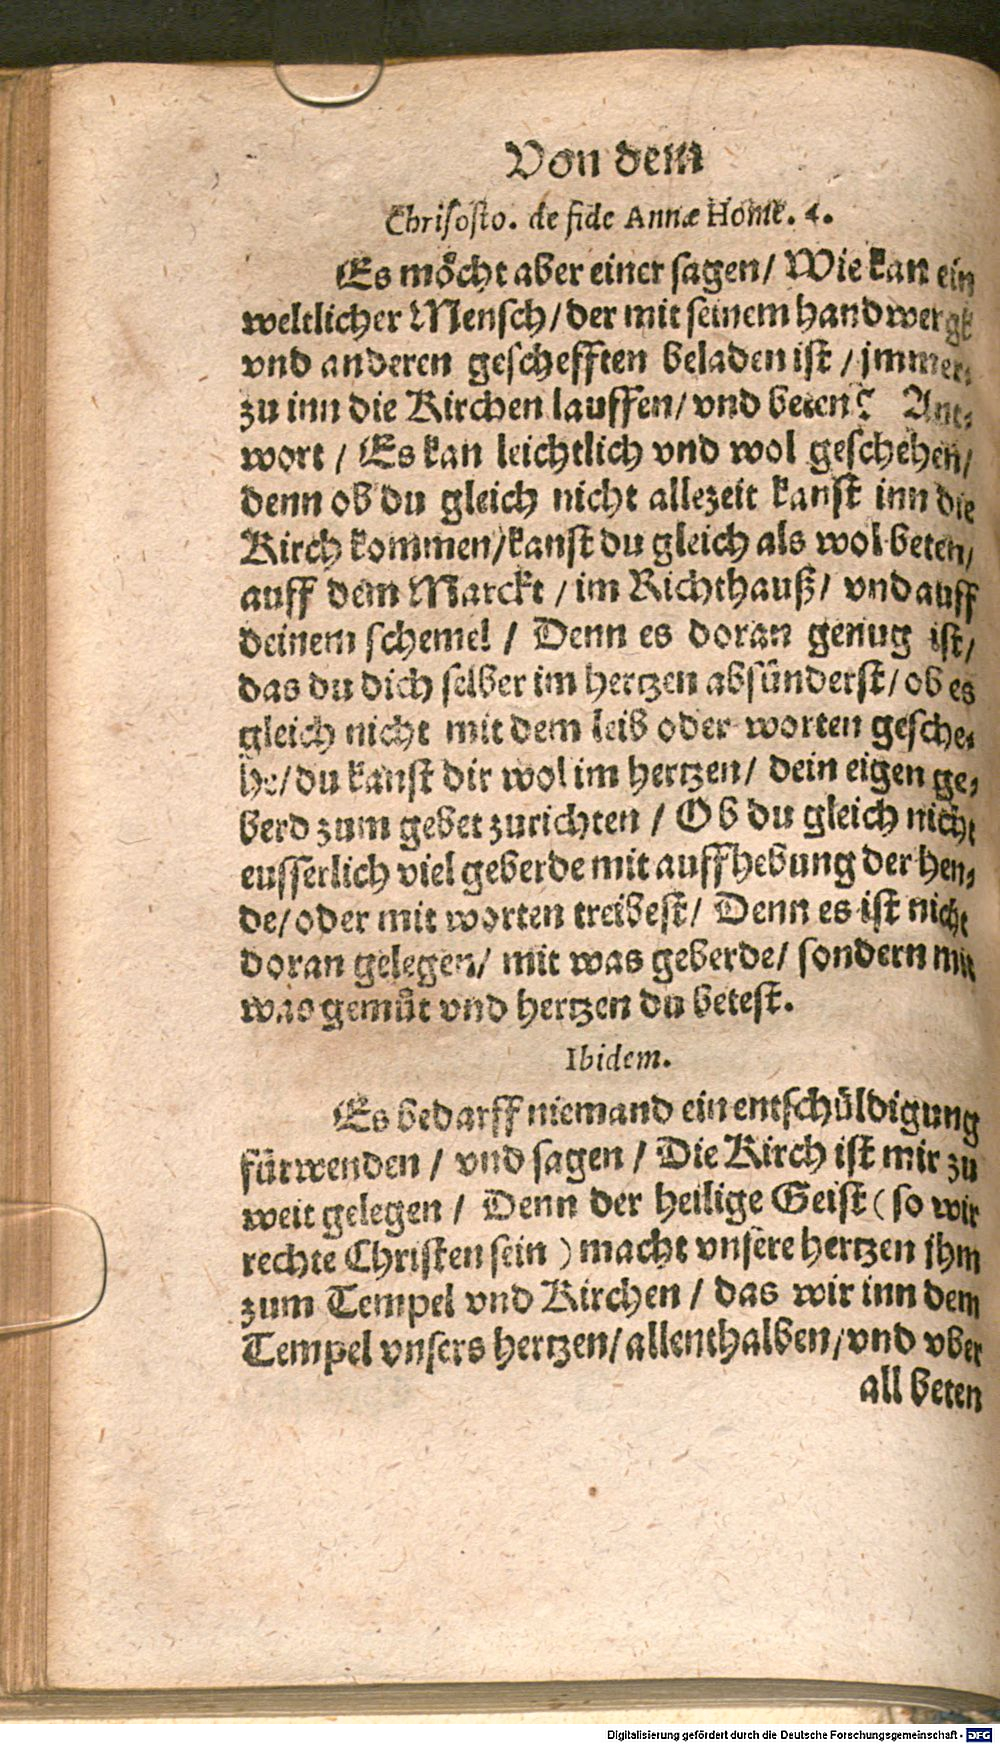 Von dem
Chrisosto. de fide Annæ Homil. 4.
Es möcht aber einer sagen/ Wie kan ein
weltlicher Mensch/ der mit seinem handwergk
vnd anderen geschefften beladen ist / jmmer⸗
zu inn die Kirchen lauffen/ vnd beten? Ant⸗
wort / Es kan leichtlich vnd wol geschehen/
denn ob du gleich nicht allezeit kanst inn die
Kirch kommen/ kanst du gleich als wol beten/
auff dem Marckt / im Richthauß/ vnd auff
deinem schemel / Denn es doran genug ist/
das du dich selber im hertzen absünderst/ ob es
gleich nicht mit dem leib oder worten gesche⸗
he/ du kanst dir wol im hertzen/ dein eigen ge⸗
berd zum gebet zurichten / Ob du gleich nicht
eusserlich viel geberde mit auffhebung der hen⸗
de/ oder mit worten treibest/ Denn es ist nicht
doran gelegen/ mit was geberde/ sondern mit
was gemüt vnd hertzen du betest.
Ibidem.
Es bedarff niemand ein entschüldigung
fürwenden / vnd sagen / Die Kirch ist mir zu
weit gelegen / Denn der heilige Geist ( so wir
rechte Christen sein ) macht vnsere hertzen jhm
zum Tempel vnd Kirchen / das wir inn dem
Tempel vnsers hertzen/ allenthalben/ vnd vber
all beten
Digitalisierung gefördert durch die Deutsche Forschungsgemeinschaft - DFG